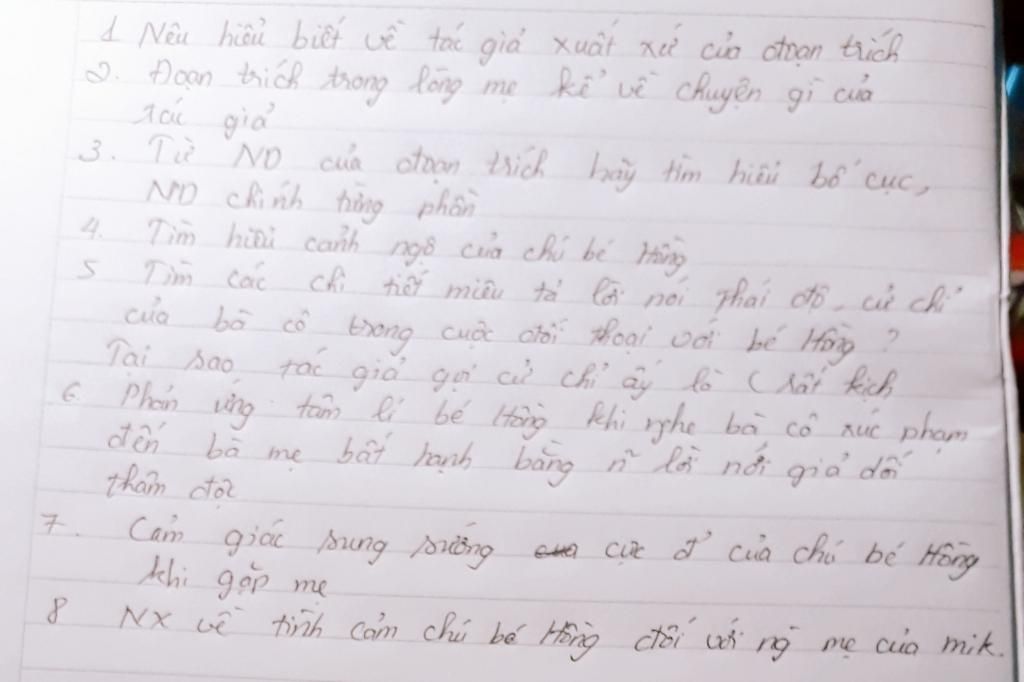 1 Nêu hiểu biết về tác giả xuất xứ của đoạn trích
2. Đoạn trích trong lòng mẹ kể về chuyện gì của
tác giả
3. Từ ND của đoạn trích hãy tìm hiểu bố cục,
ND chính từng phần
4. Tìm hiểu cảnh ngộ của chú bé Hồng
5 Tìm các chi tiết miêu tả lời nói thái độ, cử chỉ
của bà cô trong cuộc đối thoại với bé Hồng ?
Tại sao tác giả gọi cử chỉ ấy là ( rất kịch
6 Phản ứng tâm lí bé Hồng khi nghe bà cô xúc phạm
đến bà mẹ bất hạnh bằng n~ lời nói giả dối
thâm độc
7. Cảm giác sung sướng cực đ' của chú bé Hồng
khi gặp mẹ
8 NX về tình cảm chú bé Hồng đối với ng` mẹ của mik.